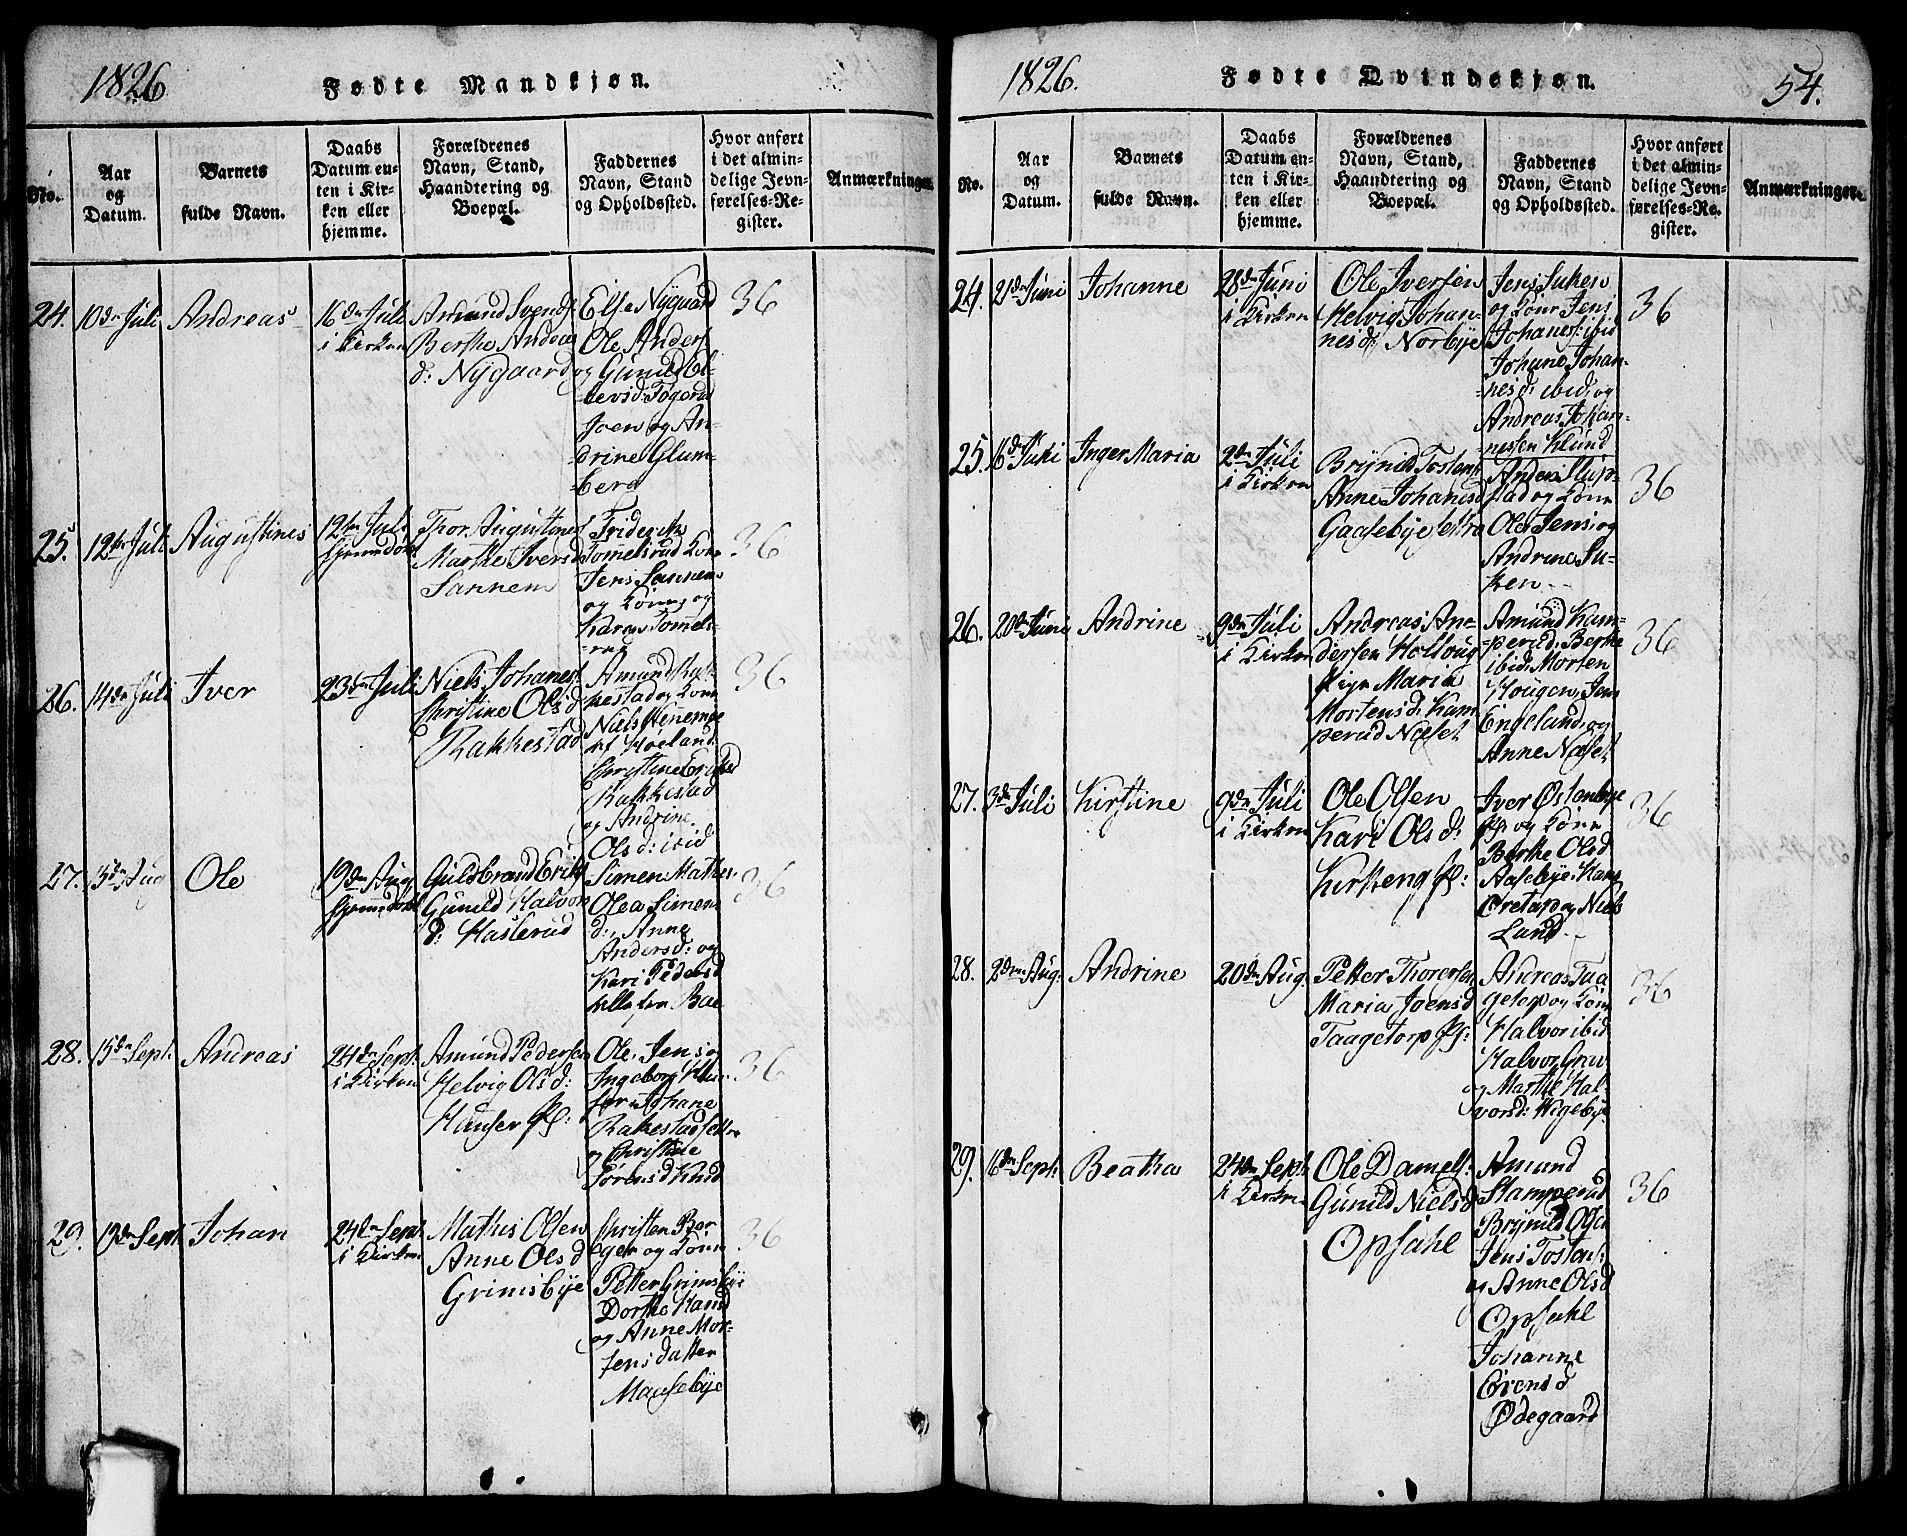 1826
Fødte Mandkjøn.
No.
Aar og Datum.
Barnets fulde Navn.
Daabs Datum enten i Kirken eller hjemme.
Forældrenes Navn, Stand, Haandtering og Boepæl.
Faddernes Navn, Stand og Opholdssted.
Hvor anført i det almindelige Jevnførelses-Register.
Anmærkninger.
24. 10de Juli Andreas 16de Juli i Kirken
Amund Svends.
Berthe Andeas
d: Nygaard
Else Nygaard
Ole Anders.
og Gunild El-
levsd: Togerud
Joen og An-
drine Glum-
berg
36
25. 12te Juli Augustines 12te Juli
Hjemmedøbt
Thor Augustines.
Marthe Iversd
Sannem
Friderik
Tomelsrud Kone
Jens Sannem
og Kone, og
Karen Tomels-
rud
36
26. 14de Juli Iver 23de Juli
Niels Johanes.
Christine Olsd
Rakkestad
Amund Rak-
kestad og Kone
Niels
Høeland
Christine Eriksd
Rakkestad
og Andrine
Olsd: ibid
36
27. 15de Aug Ole 19de Aug
Hjemmedøbt
Guldbrand Eriks.
Gunild Halvors
d: Haslerud
Simen Mathis.
Olea Simens
d:, Anne
Andersd: og
Kari Pedersd
alle fra Bae
36
28. 15de Sept: Andreas 24de Sept:
i Kirken
Amund Pedersen
Helvig Olsd:
Hauser Pl:
Ole, Jens og
Ingeborg
Johane
Rakestad
og Christine
Sørensd Knud
36
29. 19de Sept Johan 24de Sept
i Kirken
Mathis Olsen
Anne Olsd
Grimsbye
Christen Ber
ger og Kone
Petter Grimsbye
Dorthe Kand
og Anne Mor-
tensdatter
Maasebye
36
1826.
Fødte Qvindekjøn.
54.
No.
Aar og Datum.
Barnets fulde Navn.
Daabs Datum enten i Kirken eller hjemme.
Forældrenes Navn, Stand, Haandtering og Boepæl.
Faddernes Navn, Stand og Opholdssted.
Hvor anført i det almindelige Jevnførelses-Register.
Anmærkninger.
24. 21de Juni Johanne 28de Juni
i Kirken
Ole Iversen
Helvig Johan-
nesd: Norbye
Jens Suken
og Kone Jens
Johanes: ibid
Johane Johan-
nesd: ibid, og
Andreas Johan-
nesen Klund
36
25. 16de Juni Inger Maria 2de Juli
i Kirken
Brynild Tostens.
Anne Johanesd
Gaasebye
Anders Slup-
stad og Kone
Ole, Jens, og
Andrine Su-
ken
36
26. 20de Juni Andrine 9de Juli
i Kirken
Andreas An-
dersen Holtoug
Maria
Mortensd: Kam
perud Næset
Amund Kam-
perud, Berthe
ibid, Morten
Hougen, Jens
Engeland, og
Anne Næset
36
27. 3de Juli Kirstine 9de Juli
i Kirken
Ole Olsen
Kari Olsd:
Kirkeng Pl:
Iver Østenbye
Pl: og Kone
Berthe Olsd
Aasebye, Hans
Øretorp og Niels
Lund
36
28. 2den Aug: Andrine 20de Aug.
Petter Thoresen
Maria Joensd
Taagetorp Pl:
Andreas Taa
getorp og Kone
Halvor ibid
Halvor Grav
og Marthe Hal-
vorsd: Wigebye
36
29. 6de Sept: Beatha 24de Sept
i Kirken
Ole Daniels:
Gunild Nielsd
Opsahl
Amund
Stamperud
Brynild Olsen
Jens Tostens:
og Anne Olsd
Opsahl
Johanne
Sørensd
Ødegaard
36